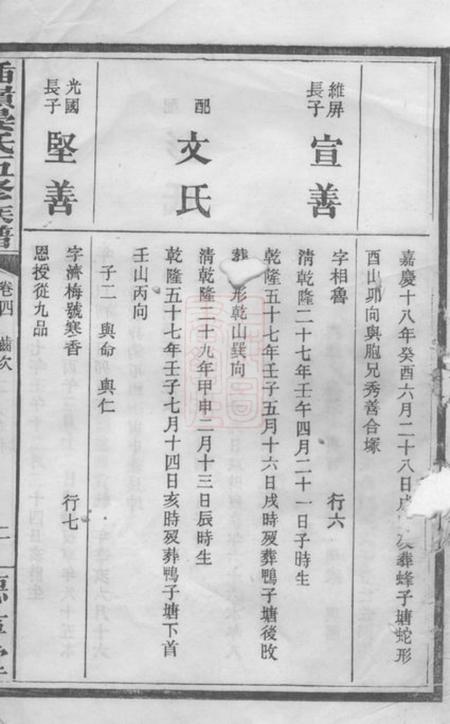 嘉慶十八年癸酉六月二十八日戌 歿葬蜂子塘蛇形
酉山卯向與胞兄秀善合塚
維屏
長子
宣善
字相魯 行六
清乾隆二十七年壬午四月二十一日子時生
乾隆五十七年壬子五月十六日戌時歿葬鴨子塘後
葬 形乾山巽向
配
文氏
清乾隆二十九年甲申二月十三日辰時生
乾隆五十七年壬子七月十四日亥時歿葬鴨子塘下首
壬山丙向
子二 與命 與仁
光國
長子
堅善
字濟梅號寒香 行七
恩授從九品
吳氏五修族譜
卷四 齒次